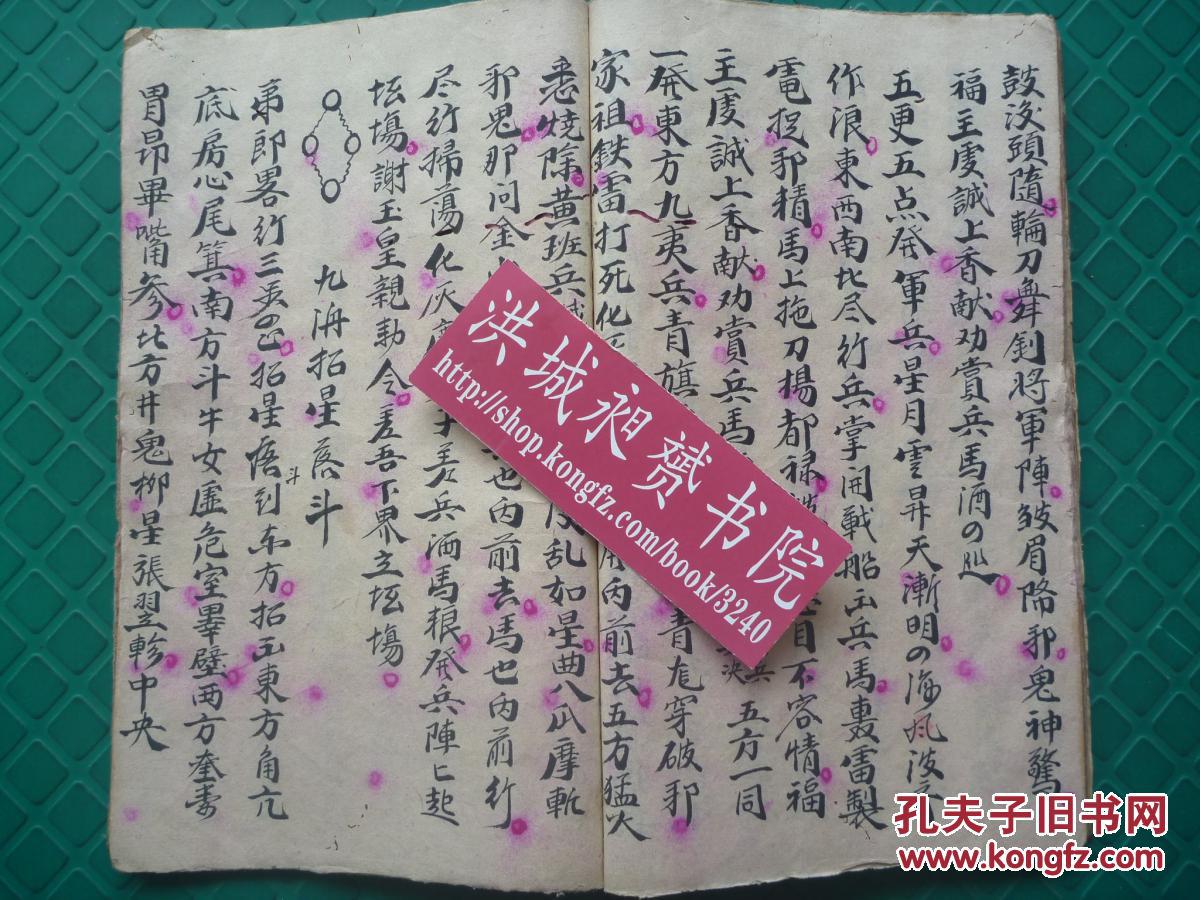 鼓没頭隨輪刀舞劍將軍陣皱眉降邪鬼神驚
福主虔誠上香献劝賞兵馬酒の巡
五更五点発軍兵星月雲昇天漸明の海風波
作浪東西南北尽行兵掌開戦船出兵馬轟雷製
電捉邪精馬上拖刀揚都禄 自不容情福
主虔誠上香献劝賞兵馬 决兵 五方一同
一発東方九夷兵青旗 青 穿破邪
家祖鉄雷打死化 内前去五方猛火
悉燒除黄班兵 乱如星曲八瓜摩斬
邪鬼那問金 也内前去馬也内前行
尽行掃蕩化灰 差兵洒馬粮発兵陣上起
坛場謝玉皇親勅令差吾下界立坛場
九海招星 斗
弟郎畧行三 招星 斗到东方招出東方角亢
底房心尾箕南方斗牛女虚危室畢壁西方奎婁
胃昴畢嘴參北方井鬼柳星張翌軫中央
洪城昶赟书院
http://shop.kongfz.com/book/3240
孔夫子旧书网
www.kongfz.com